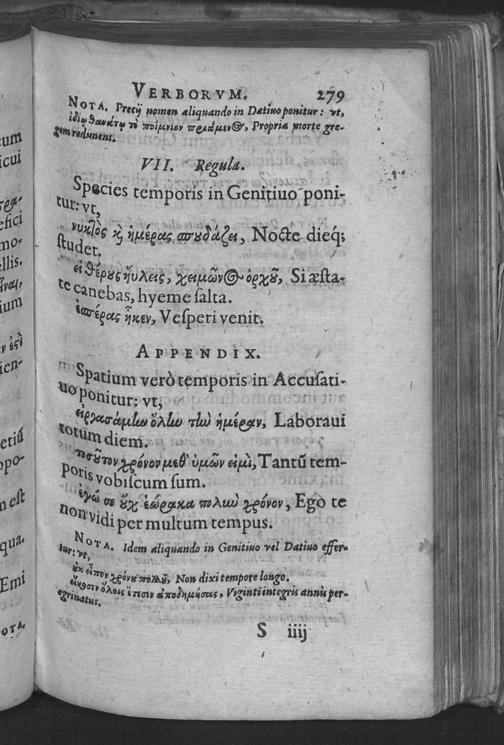 VERBORVM. 279
NOTA. Precij nomen aliquando in Datiuo ponitur: vt,
ἰδίῳ θανάτῳ τὸ ποίμνιον πριάμενος, Propria morte gre-
gem redimens.
VII. Regula.
Species temporis in Genitiuo poni-
tur: vt,
νυκτὸς καὶ ἡμέρας σπουδάζει, Nocte dieq;
studet.
εἰ θέρους ηὔλεις, χειμῶνος ὀρχοῦ, Si æsta-
te canebas, hyeme salta.
ἑσπέρας ἧκεν, Vesperi venit.
APPENDIX.
Spatium verò temporis in Accusati-
uo ponitur: vt,
εἰργασάμην ὅλην τὴν ἡμέραν, Laboraui
totum diem.
τοσοῦτον χρόνον μεθ' ὑμῶν εἰμὶ, Tantũ tem-
poris vobiscum sum.
ἐγώ σε οὐχ ἑώρακα πολὺν χρόνον, Ego te
non vidi per multum tempus.
NOTA. Idem aliquando in Genitiuo vel Datiuo effer-
tur: vt,
οὐκ εἶπον χρόνου πολλοῦ, Non dixi tempore longo.
εἴκοσιν ὅλοις ἔτεσιν ἀποδημήσας, Viginti integris annis per-
egrinatus.
S iiij
cum
icui
efici
mo-
llis.
ium
ien-
etiũ
opo-
n est
qua.
Emi
OTA.